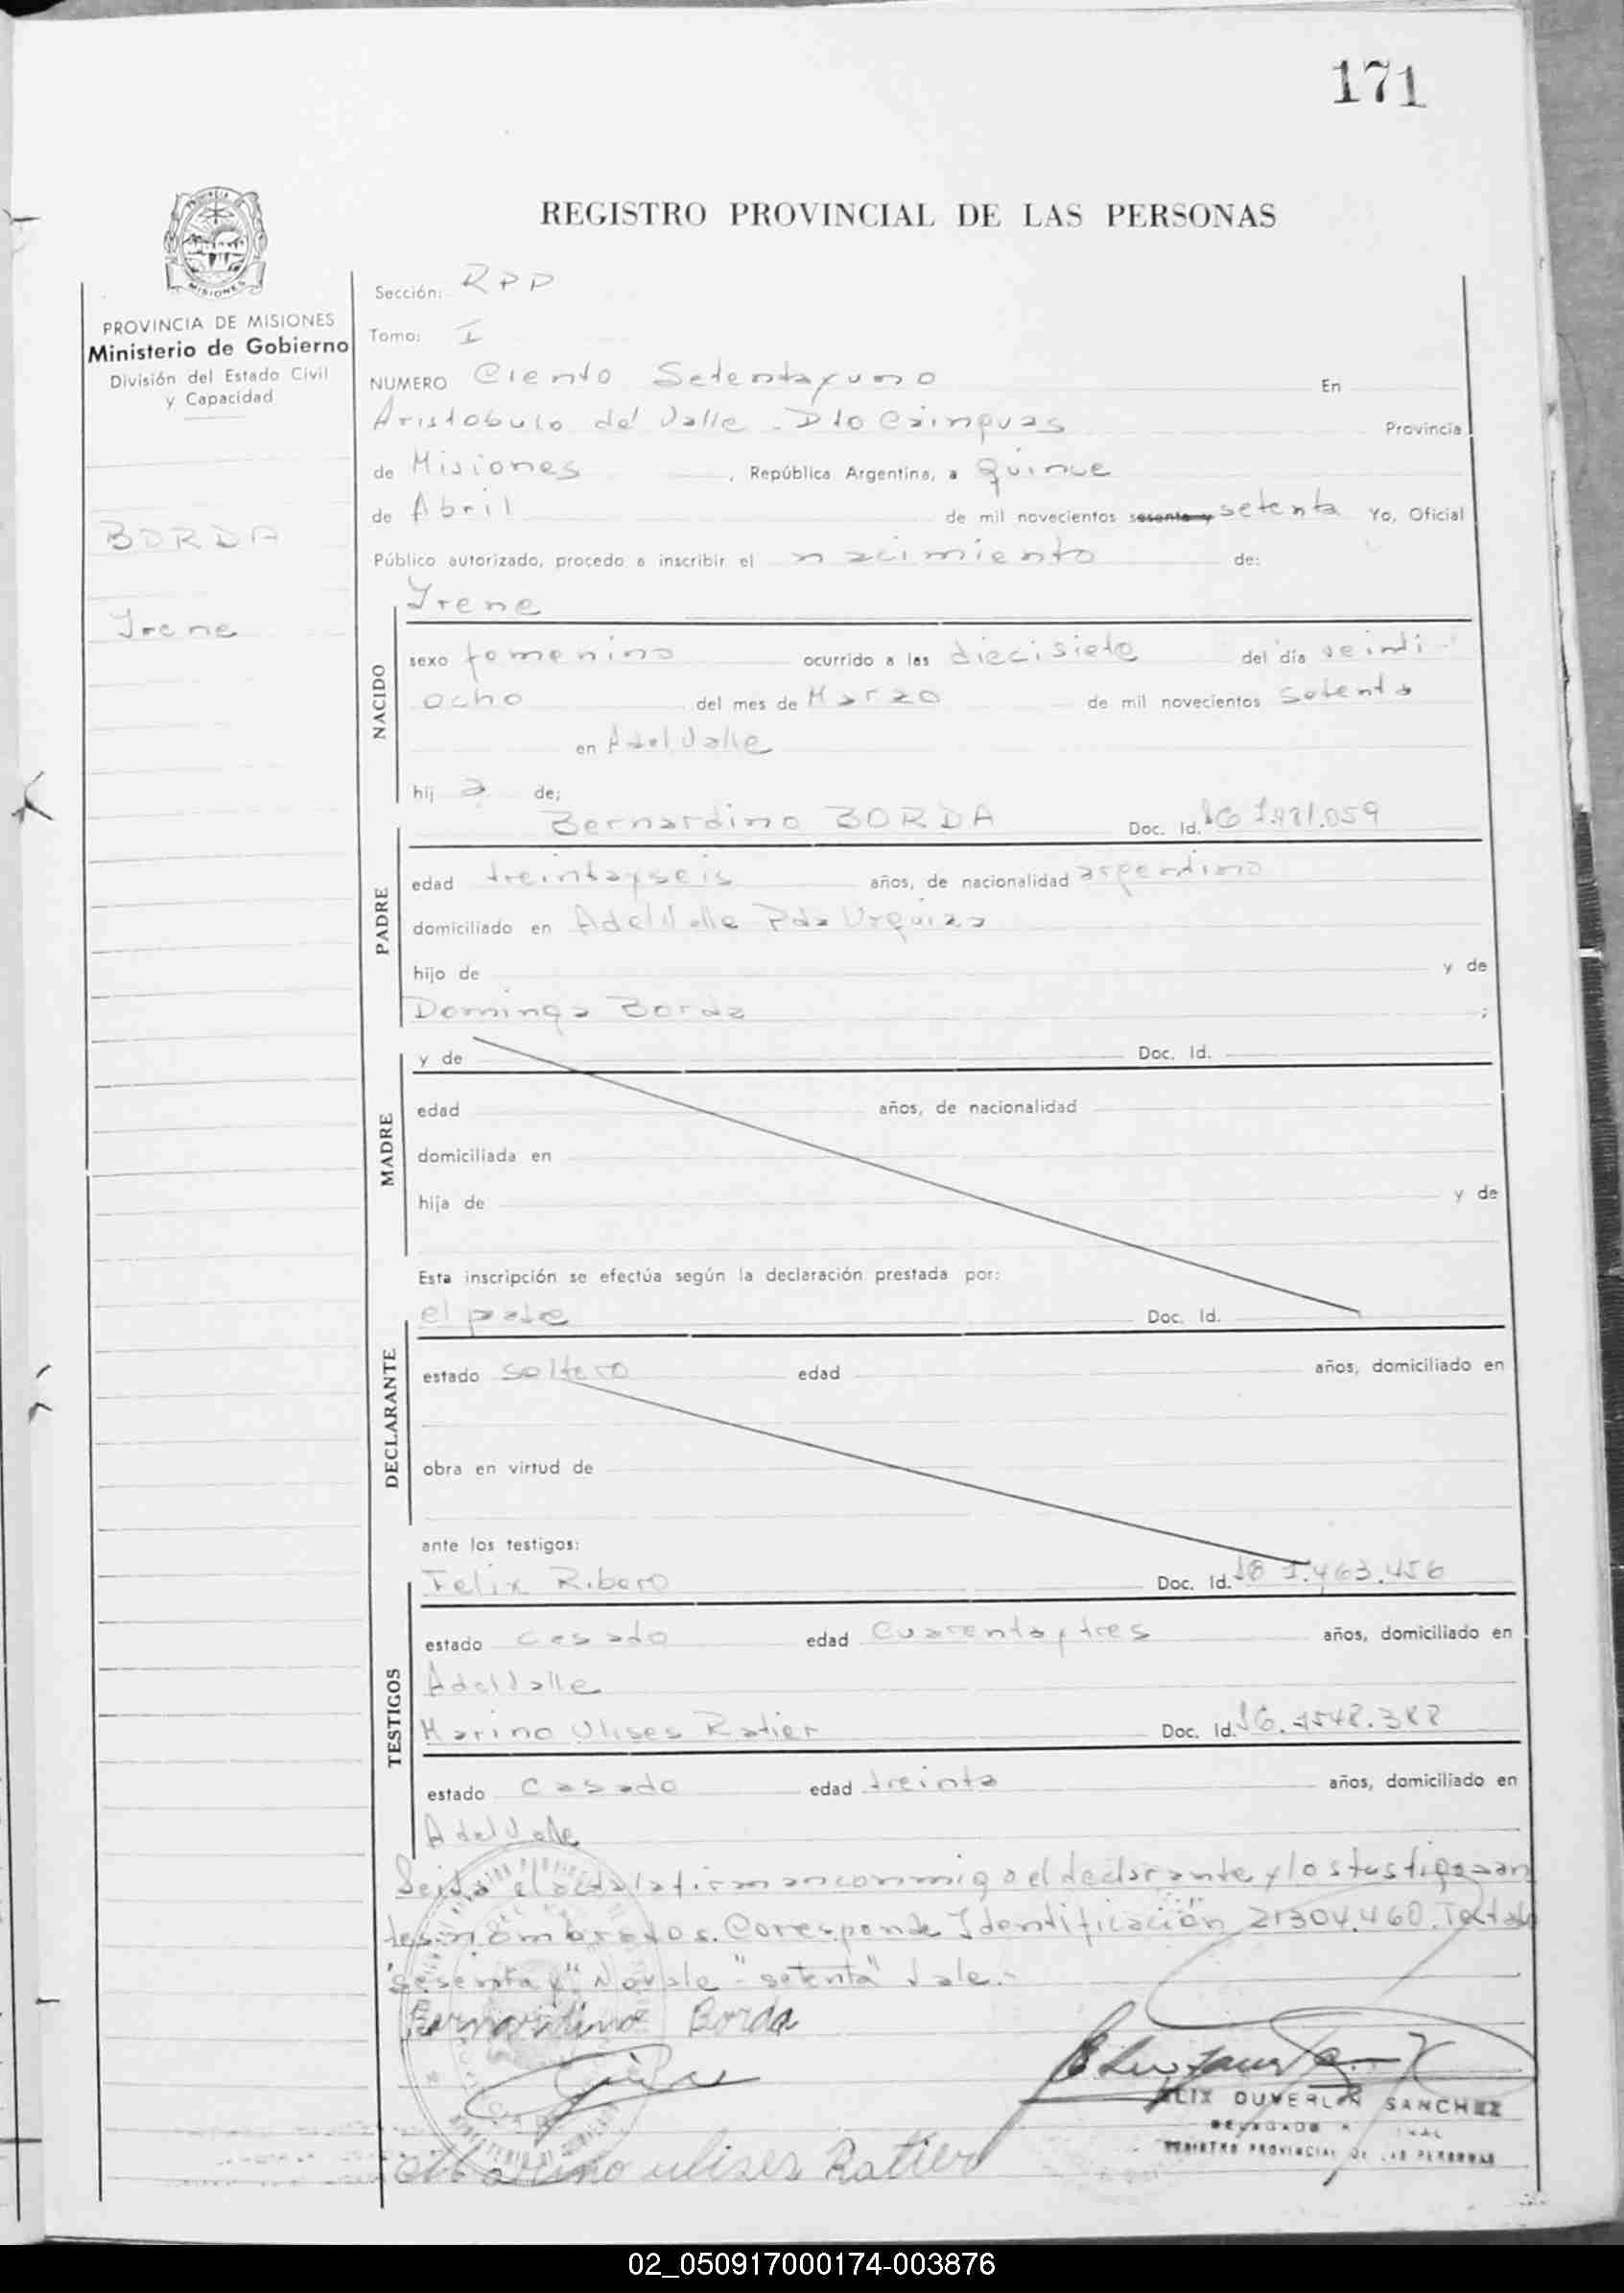 171
REGISTRO PROVINCIAL DE LAS PERSONAS
PROVINCIA DE MISIONES
Ministerio de Gobierno
División del Estado Civil
y Capacidad
BORDA
Irene
Sección: RPP
Tomo: I
NUMERO Ciento Setentayuno En
Aristobulo del Valle - Dto Cainguas Provincia
de Misiones, República Argentina, a quince
de Abril de mil novecientos sesenta y setenta Yo, Oficial
Público autorizado, procedo a inscribir el nacimiento de:
Irene
NACIDO
sexo femenino ocurrido a las diecisiete del día veinti-
ocho del mes de Marzo de mil novecientos setenta
en AdelValle
hij a de;
PADRE
Bernardino BORDA Doc. Id.
edad treintayseis años, de nacionalidad argentino
domiciliado en AdelValle Pda Urquiza
hijo de y de
Dominga Borda ;
MADRE
y de Doc. Id.
edad años, de nacionalidad
domiciliada en
hija de y de
Esta inscripción se efectúa según la declaración prestada por:
DECLARANTE
el padre Doc. Id.
estado soltero edad años, domiciliado en
obra en virtud de
ante los testigos:
TESTIGOS
Felix Ribero Doc. Id. 1.463.456
estado casado edad cuarentaytres años, domiciliado en
AdelValle
Marino Ulises Ratier Doc. Id.
estado casado edad treinta años, domiciliado en
AdelValle
Leida el acta la firman conmigo el declarante y los testigos an
tes nombrados. Coresponde Identificación 21304.460. Testado
"sesenta y" No vale - "setenta" Vale.-
Bernardino Borda
Marino ulises Ratier
FELIX DUVERLIN SANCHEZ
REGISTRO PROVINCIAL DE LAS PERSONAS
02_050917000174-003876